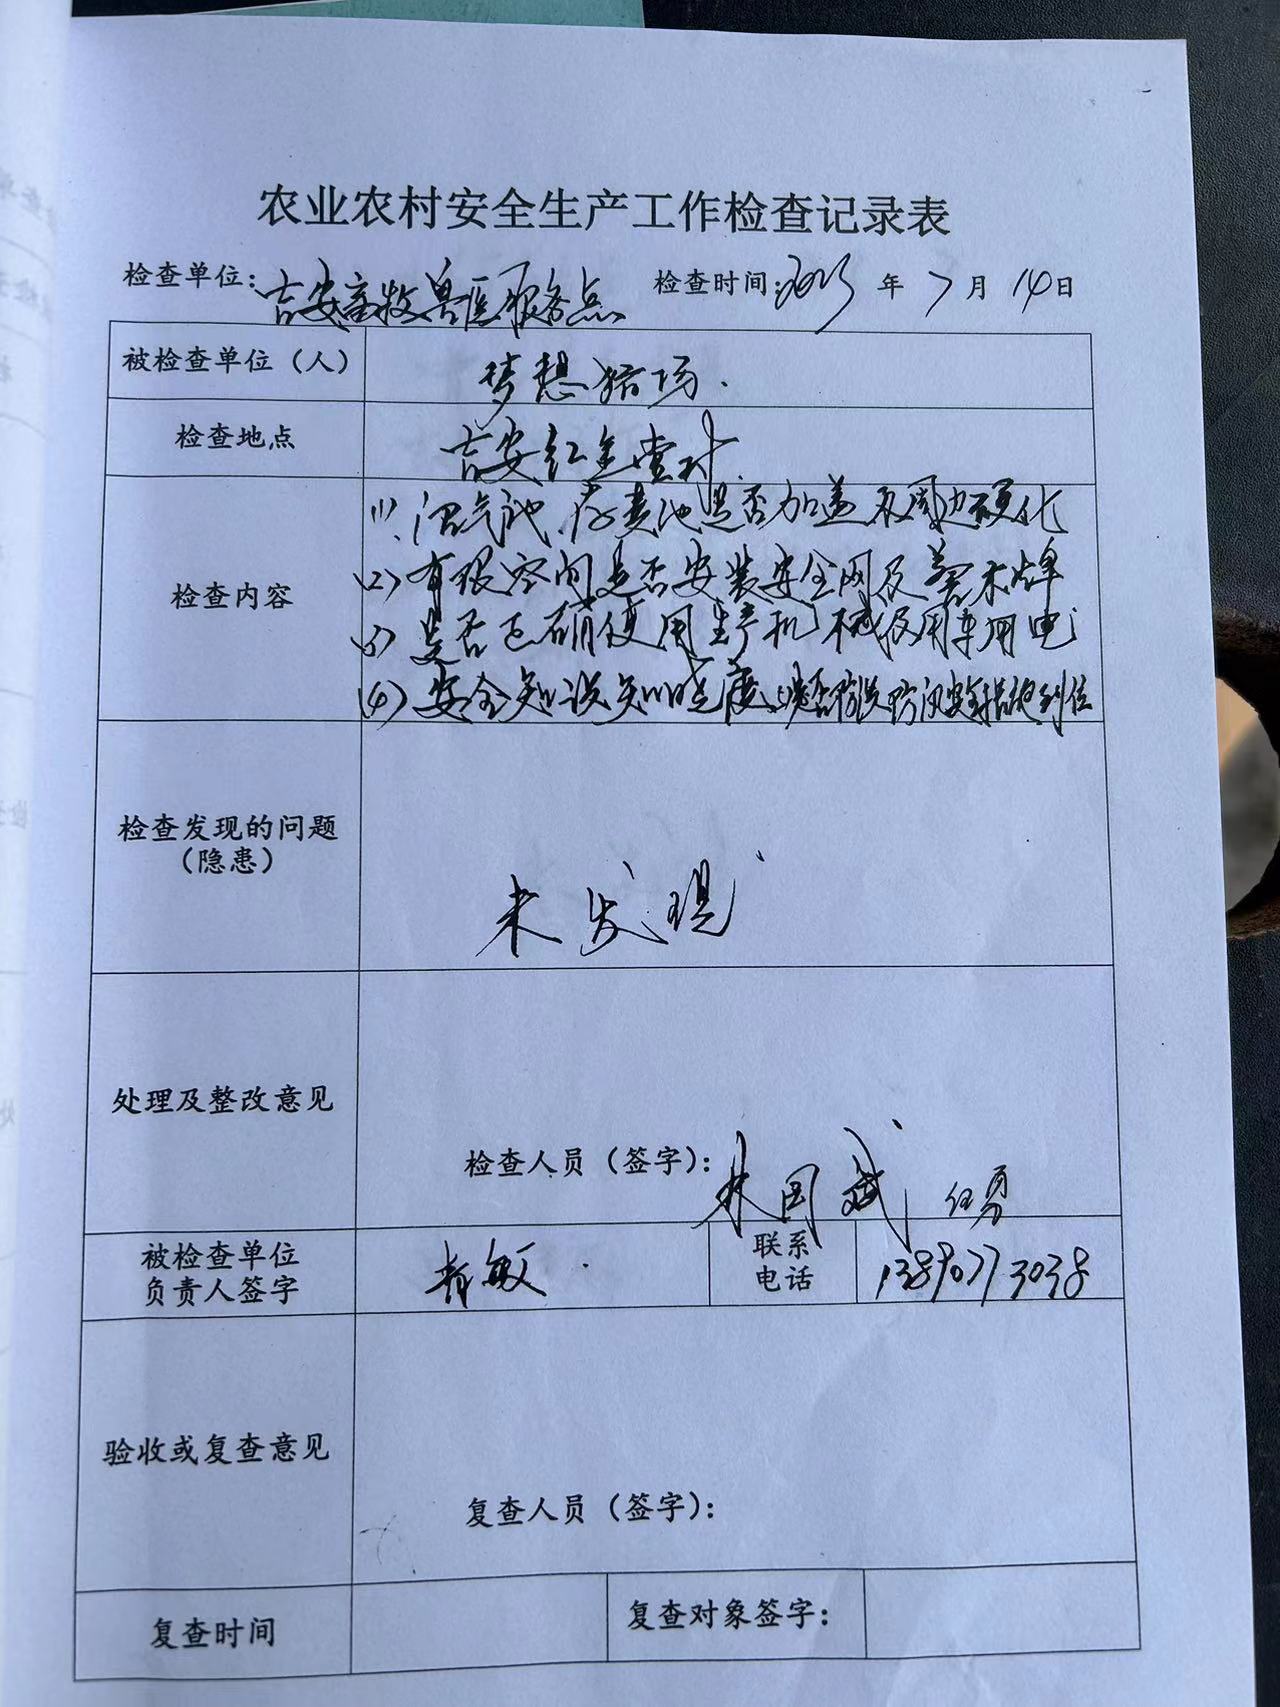 农业农村安全生产工作检查记录表
检查单位: 吉安畜牧兽医服务点 检查时间: 2025 年 7 月 14 日
被检查单位（人） 梦想猪场.
检查地点 吉安红
检查内容
(1)、沼气池、存粪池是否加盖及周边硬化
(2) 有限空间是否安装安全网及警示牌
(3) 是否正确使用生产机械及用车用电
(4) 安全知识知晓度、是否防洪防汛安全措施到位
检查发现的问题
（隐患）
未发现
处理及整改意见
检查人员（签字）: 林国斌 任勇
被检查单位
负责人签字
敏
联系
电话
13890773038
验收或复查意见
复查人员（签字）:
复查时间 复查对象签字: